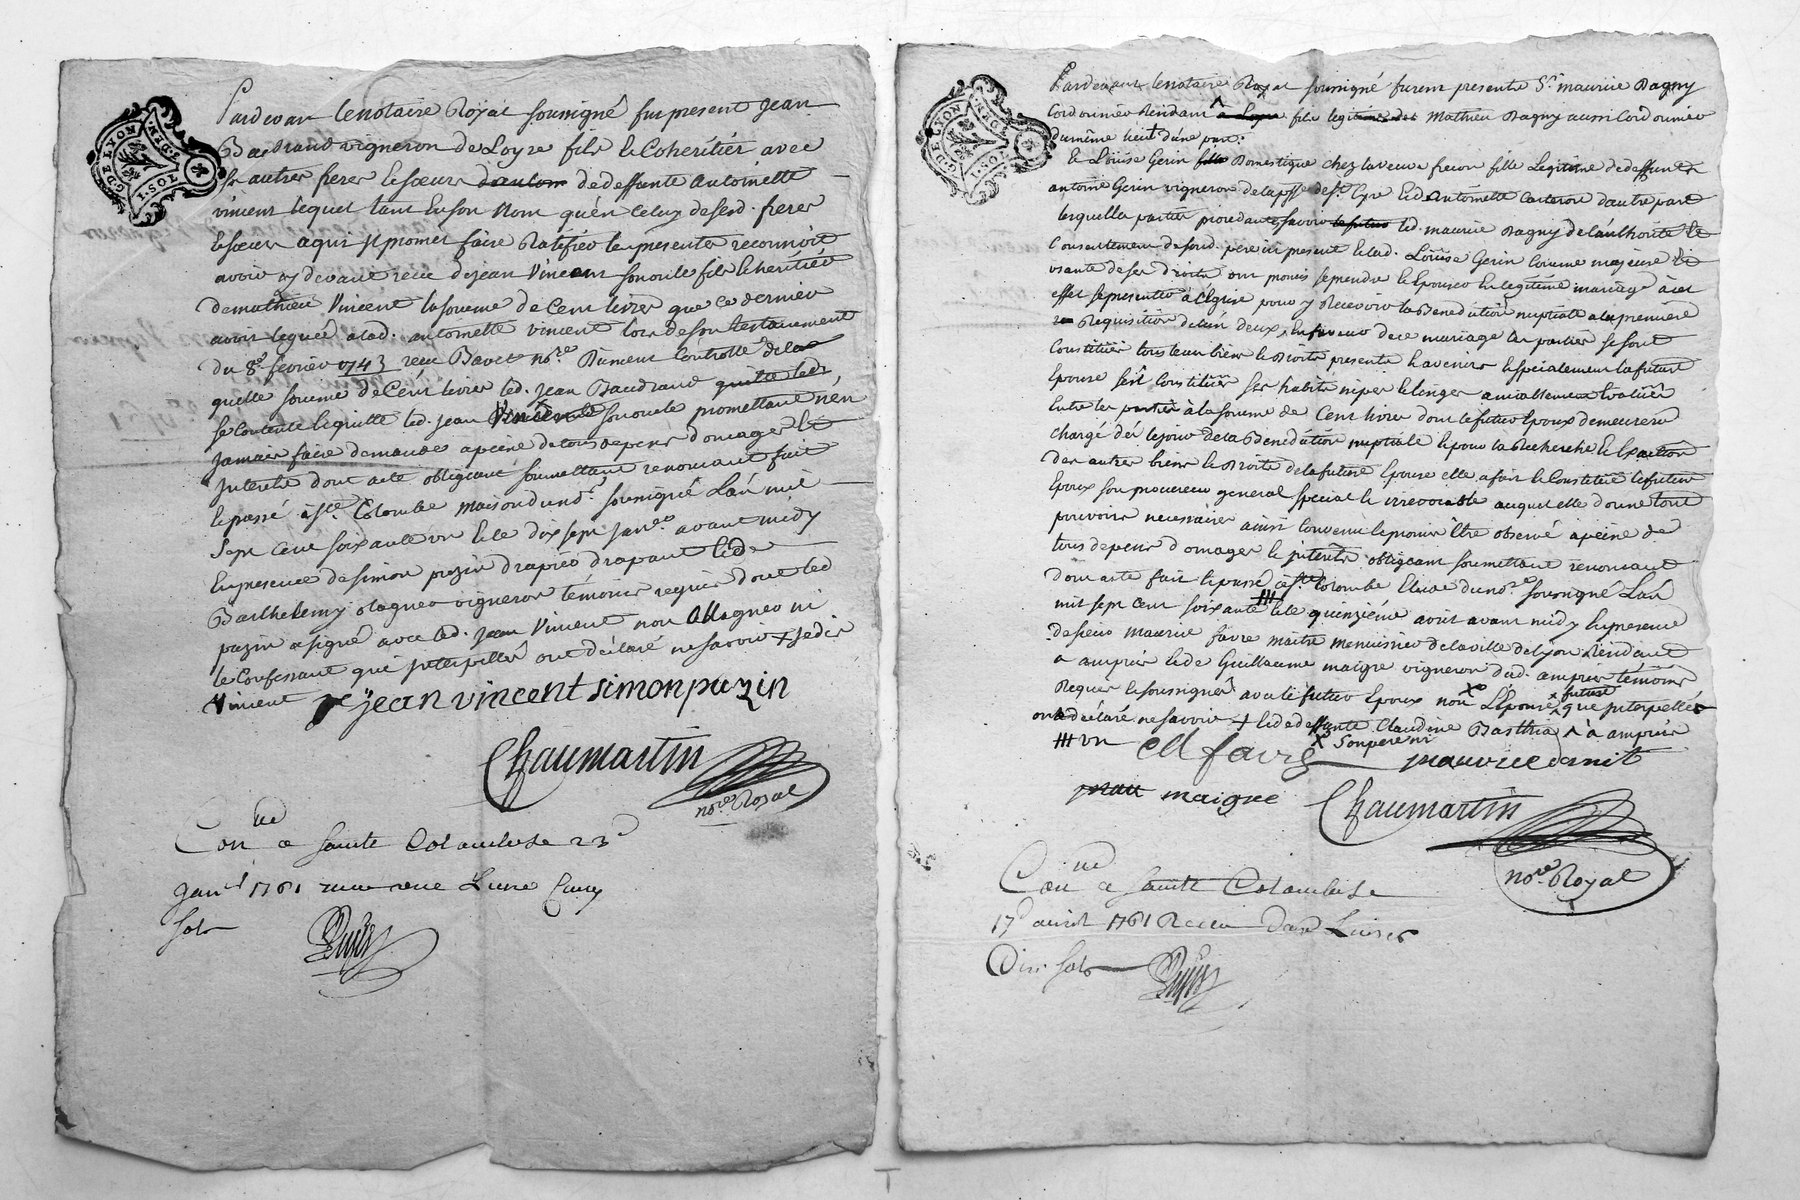 G. DE LYON
1. SOL. 3. DEN.
Pardevan le notaire Royal soussigné fut present jean
Baudrand vigneron de Loyre fils & Coheritier avec
ses autres freres & soeurs de deffunte antoinette
vincent lequel tant en son Nom qu'en Celuy de sesd. freres
& soeurs a qui il promet faire Ratifier les presentes reconnoit
avoir cy devant receu de jean Vincent son oncle fils & heritier
de mathieu Vincent la somme de Cent livres que ce dernier
avoit leguée a lad. antoinette vincent lors de son testament
du 8e fevrier 1743 receu Bavet nore Dument Controllé de la
quelle somme de Cent livres led. jean Baudrand quitte led
se Contente & quitte led. jean Vincent son oncle promettant n'en
jamais faire demande a peine de tous depens domages &
interets dont acte obligeant soumettant renoncant fait
& passé a Ste Colombe maison dud. nre soussigné L'an mil
sept cent soixante un & le dix sept janer avant midy
En presence de simon pazin drapier drapant & de
Barthelemy Magnev vigneron témoins requis dont led
pazin a signé avec led. jean Vincent non Magnev ni
le Confessant qui interpellés ont déclaré ne savoir + & dit
Vincent
jean vincent simon pazin
Chaumartin
nore Royal
Conné a Sainte Colombe le 23e
janr 1761 receu une Livre
sols
G. DE LYON
SOL. DEN.
Pardevant le notaire Royal soussigné furent presents Sr. maurice Dagny
Cordonnier Residant a Loyre fils legitime des Mathieu Dagny aussi Cordonnier
du même lieu + d'une part.
& Loüise Gerin fille Domestique chez la veuve frecon fille Legitime de deffunt
antoine Gerin vigneron de la psse de St. Cyre & de Antoinette Carteron d'autre part
lesquelles parties procedantes savoir le futur led. maurice Dagny de l'authorité &
Consentement de sond. pere ici present & lad. Loüise Gerin Comme majeure &
usante de ses Droits ont promis se prendre & Epouser En legitime mariage a cet
effet se presenter à l'Eglise pour y Recevoir la Benediction nuptiale a la premiere
Requisition de l'un deux, En faveur de ce mariage les parties se sont
Constitués tous leurs biens & Droits presents & avenirs & specialement la future
Epouse s'est Constituée ses habits nipes & linges amiablement Evalués
Entre les parties à la somme de Cent livres dont le futur Epoux demeurera
chargé dès le jour de la Benediction nuptiale & pour la Recherche & Exaction
des autres biens & Droits de la future Epouse elle a fait & Constitué le futur
Epoux son procureur general special & irrevocable auquel elle donne tout
pouvoir necessaire ainsi Convenu & promis être observé a peine de
tous depens domages & interets obligeant soumettant renoncant
dont acte fait & passé a Ste Colombe Etude du nore soussigné L'an
mil sept cent soixante & le quinzieme avril avant midy En presence
de sieur maurice favre maitre menuisier de la ville de Lyon Residant
a ampuis & de Guillaume maigre vigneron dud. ampuis témoins
Requis & soussignés avec le futur Epoux non L'épouse future que interpellés
ont déclaré ne savoir + & de deffunte Claudine Basthia a ampuis
un
son pere ni
M favre
maurice danit
maigre
Chaumartin
nore Royal
Conné a Sainte Colombe le
17e avril 1761 Receu Deux Livres
Dix sols